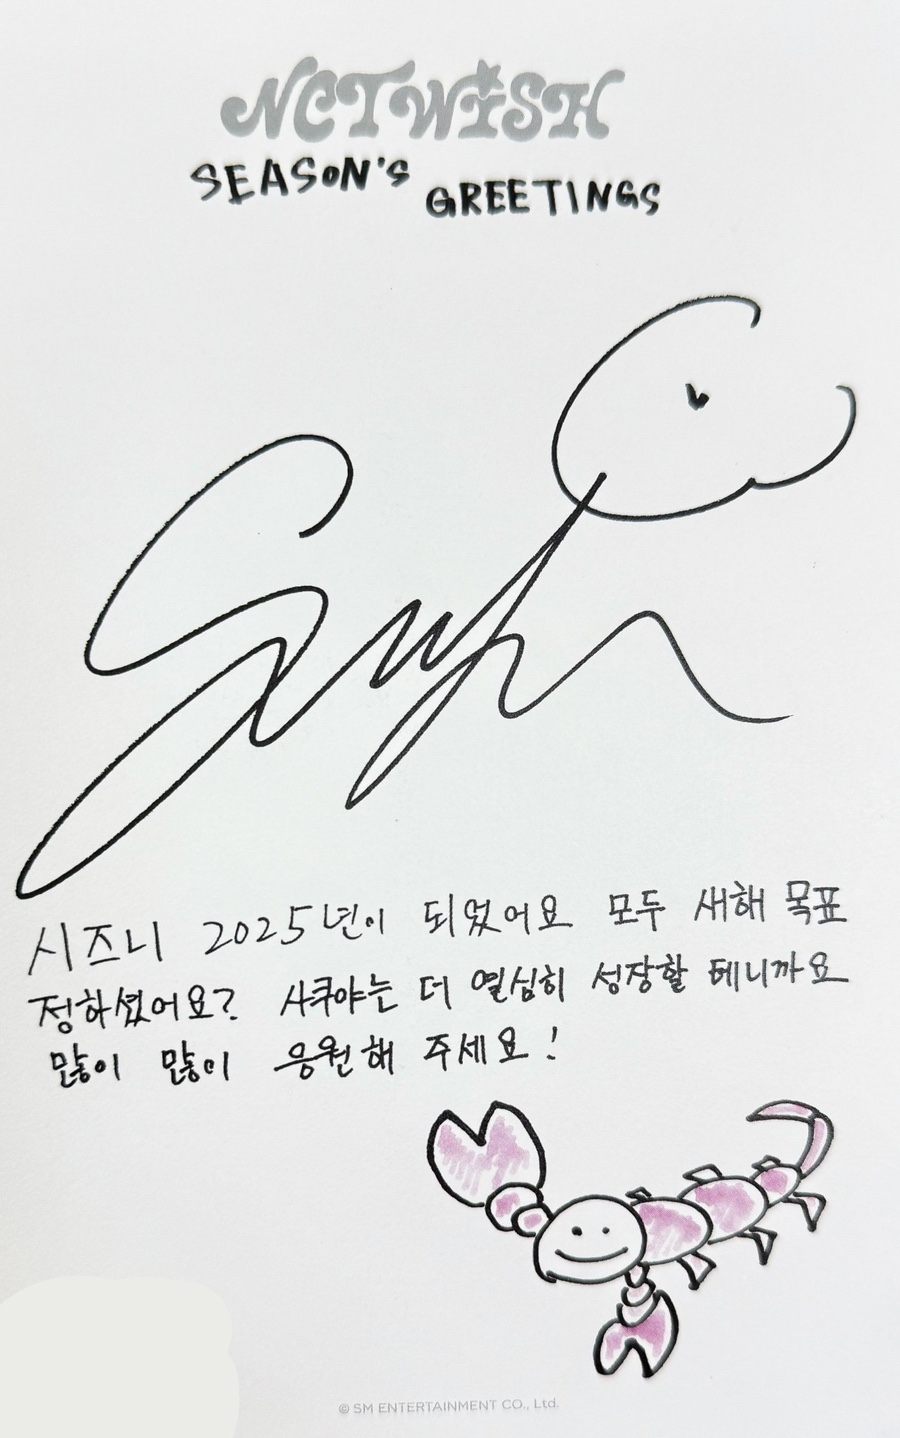 NCT WISH
SEASON'S
GREETINGS
시즈니 2025년이 되었어요 모두 새해 목표
정하셨어요? 사쿠야는 더 열심히 성장할 테니까요
많이 많이 응원해 주세요!
© SM ENTERTAINMENT CO., Ltd.